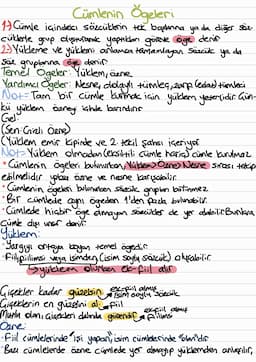 Cümlenin Öğeleri
1-) Cümle içindeki sözcüklerin tek başlarına ya da diğer söz-
cüklerle grup oluşturarak yaptıkları göreve öge denir
2-) Yükleme ve yüklemi anlamca tamamlayan sözcük ya da
söz gruplarına öge denir
Temel Ögeler: Yüklem, özne
Yardımcı Ögeler: Nesne, dolaylı tümleç, zarf (edat) tümleci
Not= Tam bir cümle kurmak için yüklem yeterlidir. Çün-
kü yüklem özneyi içinde barındırır
Gel
(Sen-Gizli Özne)
(Yüklem emir kipinde ve 2. tekil şahsı içeriyor
Not= Yüklem olmadan (eksiltili cümle hariç) cümle kurulmaz
• Cümlenin ögeleri bulunurken, Yüklem-Özne-Nesne sırası takip
edilmelidir yoksa özne ve nesne karışabilir.
• Cümlenin ögeleri bulunurken sözcük grupları bölünmez
• Bir cümlede aynı ögeden 1'den fazla bulunabilir.
• Cümlede hiçbir öge olmayan sözcükler de yer alabilir. Bunlara
cümle dışı unsur denir
Yüklem:
• Yargıyı ortaya koyan temel ögedir.
• Fiil, fiilimsi veya isimden (isim soylu sözcük) oluşabilir.
→ yüklem olurken ek-fiil alır
Çiçekler kadar güzelsin → ek-fiil almış isim soylu sözcük
Çiçeklerin en güzelini al → fiil
Mutlu olan, çiçekleri dalında → ek-fiil almış fiilimsi
Özne:
• Fiil cümlelerinde "işi yapan", isim cümlelerinde "olan"dır
• Bazı cümlelerde özne cümlede yer almayıp yüklemden anlaşılır,